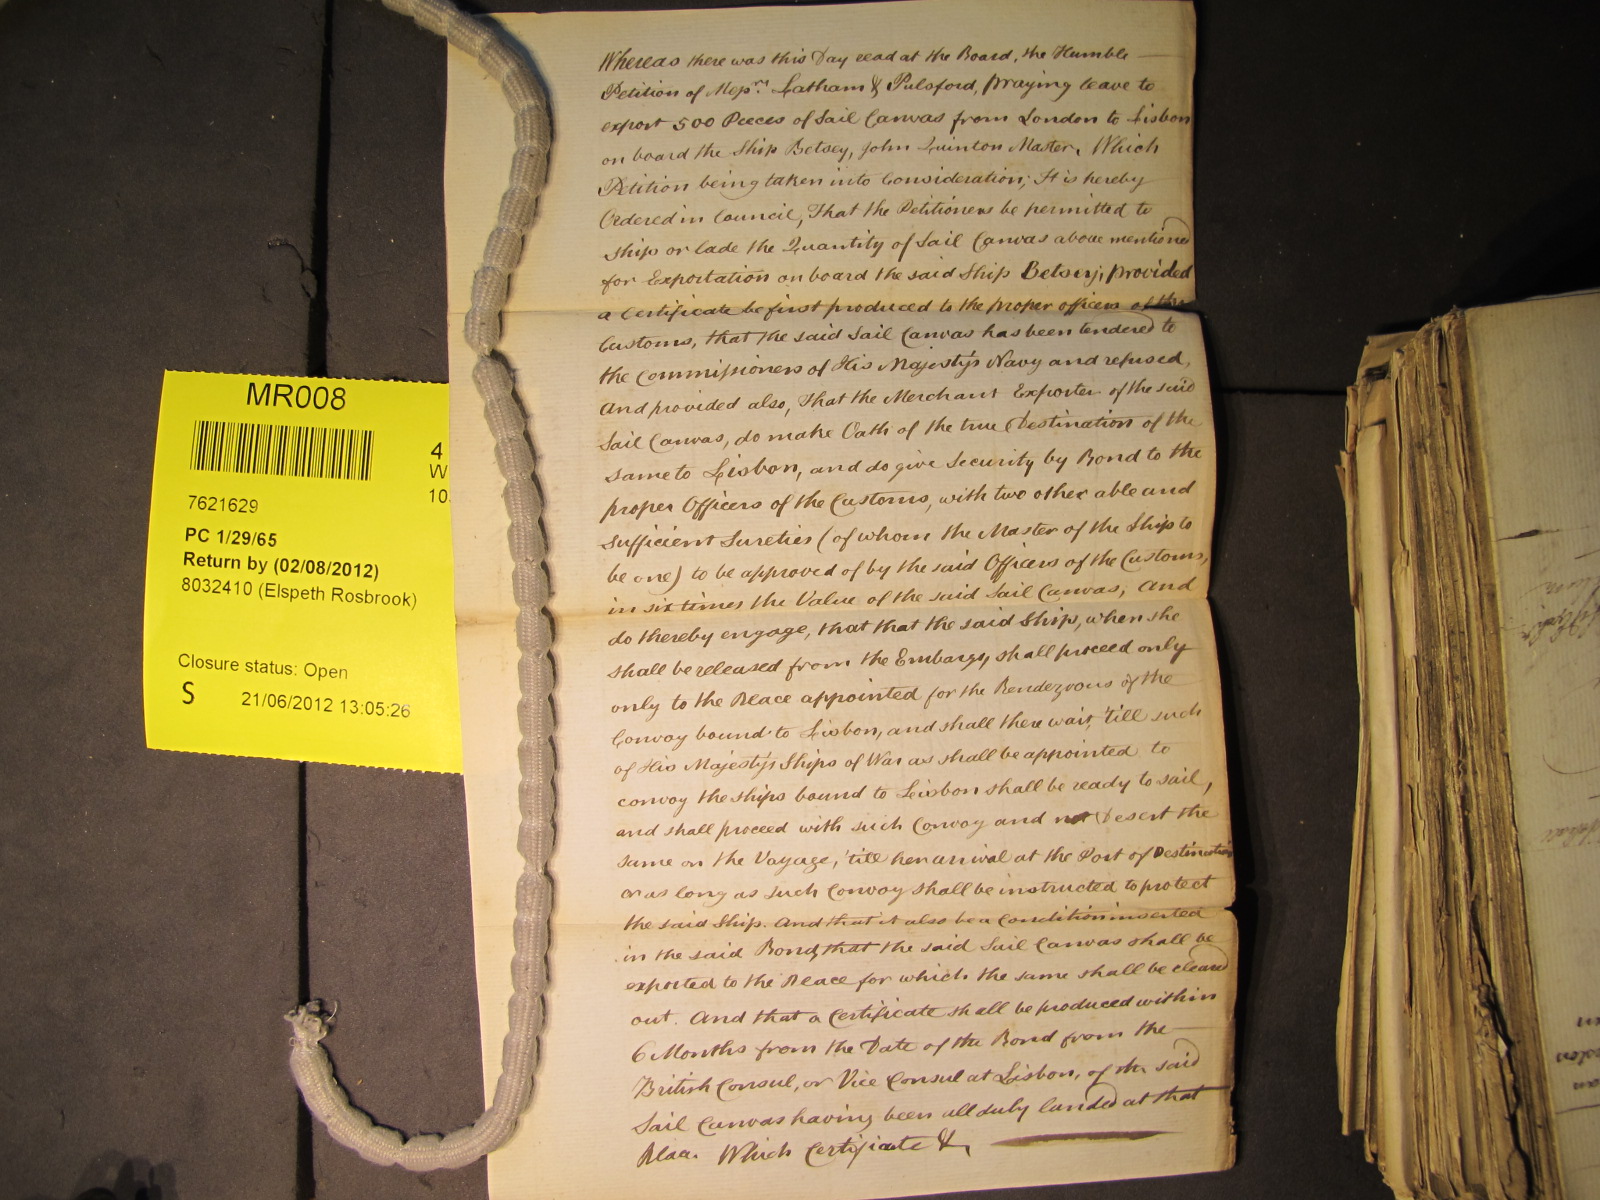 MR008
4
W
10
7621629
PC 1/29/65
Return by (02/08/2012)
8032410 (Elspeth Rosbrook)
Closure status: Open
S 21/06/2012 13:05:26
Whereas there was this Day read at the Board, the Humble
Petition of Messrs. Latham & Pulsford, praying leave to
export 500 Pieces of Sail Canvas from London to Lisbon
on board the Ship Betsey, John Quinton Master, Which
Petition being taken into Consideration; It is hereby
Ordered in Council, That the Petitioners be permitted to
ship or lade the Quantity of Sail Canvas above mentioned
for Exportation on board the said Ship Betsey, provided
a Certificate be first produced to the proper officers of the
Customs, that the said Sail Canvas has been tendered to
the Commissioners of His Majesty's Navy and refused,
And provided also, That the Merchant Exporter of the said
Sail Canvas, do make Oath of the true Destination of the
same to Lisbon, and do give Security by Bond to the
proper Officers of the Customs, with two other able and
sufficient Sureties (of whom the Master of the Ship to
be one) to be approved of by the said Officers of the Customs,
in six times the Value of the said Sail Canvas, And
do thereby engage, that that the said Ship, when she
shall be released from the Embargo, shall proceed only
only to the Place appointed for the Rendezvous of the
Convoy bound to Lisbon, and shall there wait, 'till such
of His Majesty's Ships of War as shall be appointed to
convoy the ships bound to Lisbon shall be ready to sail,
and shall proceed with such Convoy and not Desert the
same on the Voyage, 'till her arrival at the Port of Destination
or as long as such Convoy shall be instructed to protect
the said Ship. And that it also be a Condition inserted
in the said Bond, that the said Sail Canvas shall be
exported to the Place for which the same shall be cleared
out. And that a Certificate shall be produced within
6 Months from the Date of the Bond from the
British Consul, or Vice Consul at Lisbon, of the said
Sail Canvas having been all duly landed at that
Place. Which Certificate &c